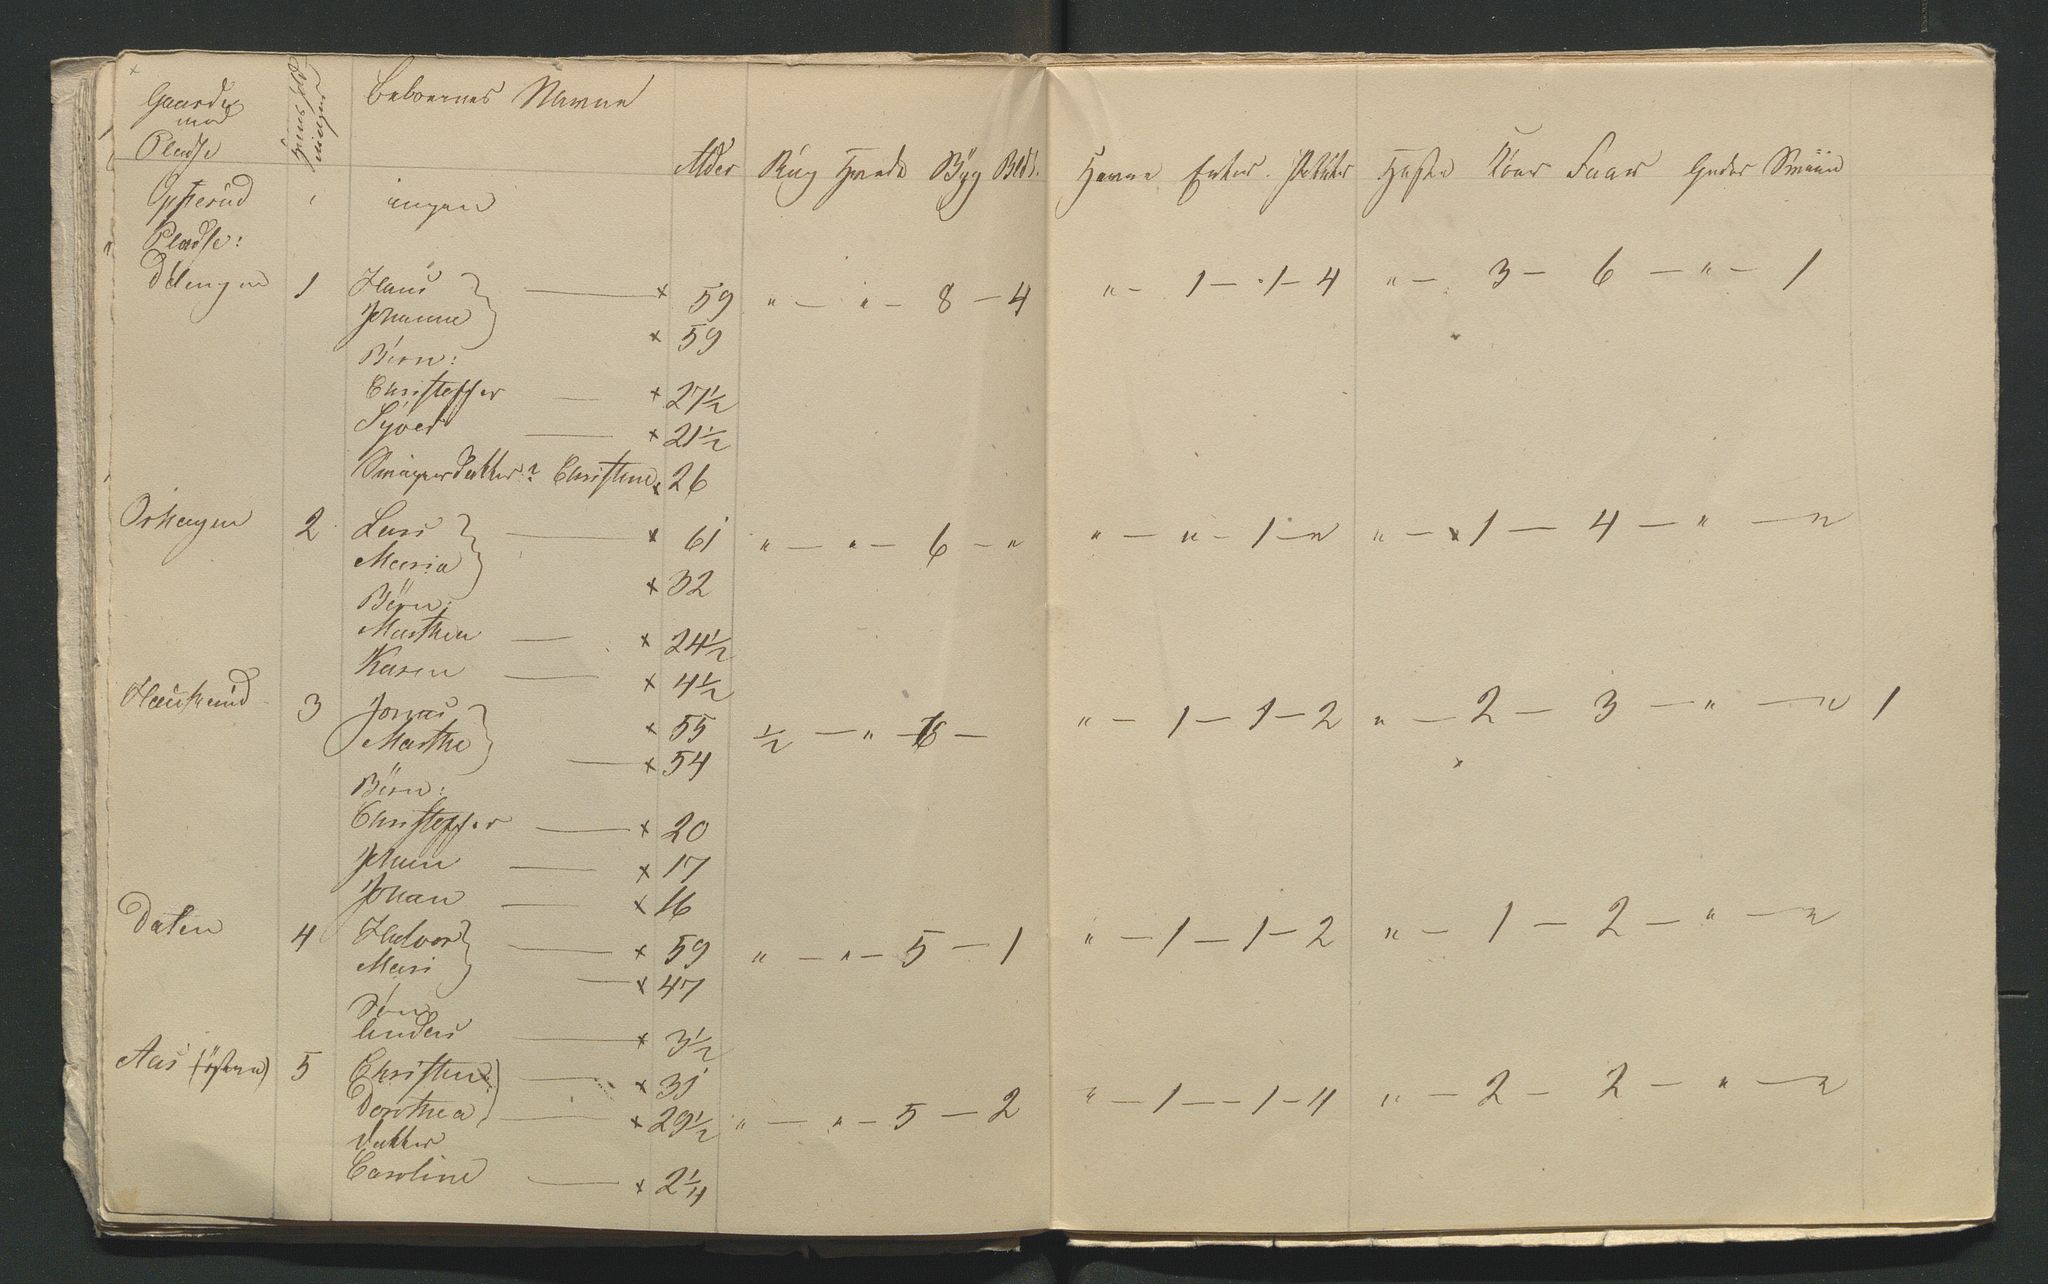 Gaarde
med
Pladse
Beboernes Navne
Alder Rúg Hvede Byg Bldk. Havre Erter Poteter Heste Køer Faar Geder Sviin
Opserud " ingen
Pladse:
Délengen 1 Hans × 59 " — " — 8 — 4 " — 1 — 1 — 4 " — 3 — 6 — " — 1
Johanne × 59
Börn:
Christoffer — × 27½
Syver — × 21½
Christine × 26
2 Lars — × 61 " — " — 6 — " " — " — 1 — " " — 1 — 4 — " — "
Maria × 32
Börn:
Marthea — × 24½
Karen — × 4½
3 Jonas × 55 ½ — " — 6 — " — 1 — 1 — 2 " — 2 — 3 — " — " 1
Marthe — × 54
Börn:
Christoffer — × 20
— × 17
Johan — × 16
Dalen 4 Halvor — × 59 " — " — 5 — 1 " — 1 — 1 — 2 " — 1 — 2 — " — "
Mari — × 47
Søn
Anders — × 3½
Aas (östre) 5 Christen — × 31
Dorothea — × 29½ " — " — 5 — 2 " — 1 — 1 — 4 " — 2 — 2 — " — "
Datter
Caroline — × 2¼